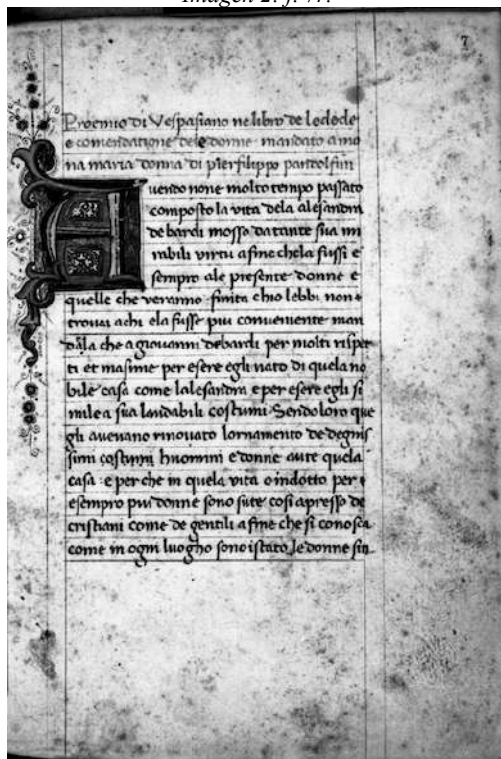 Imagen 2. f. 7r.
7
Proemio di Vespasiano ne libro de le lode
e comendatione dele donne mandato a mo
na maria donna di pierfilippo pandolfini
Avendo none molto tempo passato
composto la vita dela alesandra
de bardi mosso da tante sua mi
rabili virtu a fine chela fussi e
sempro ale presente donne e
quelle che veranno finita chio lebbi non
trovai a chi ela fusse piu conveniente man
dala che a giovanni de bardi per molti rispe
ti et masime per esere egli nato di quela no
bile casa come lalesandra e per esere egli si
mile a sua laudabili costumi Sendo loro que
gli avevano rinovato lornamento de degnis
simi costumi huomini e donne avte quela
casa e perche in quela vita o indotto per
esempro piu donne sono sute cosi apresso de
cristiani come de gentili a fine che si conosca
come in ogni luogho sono istato le donne sin